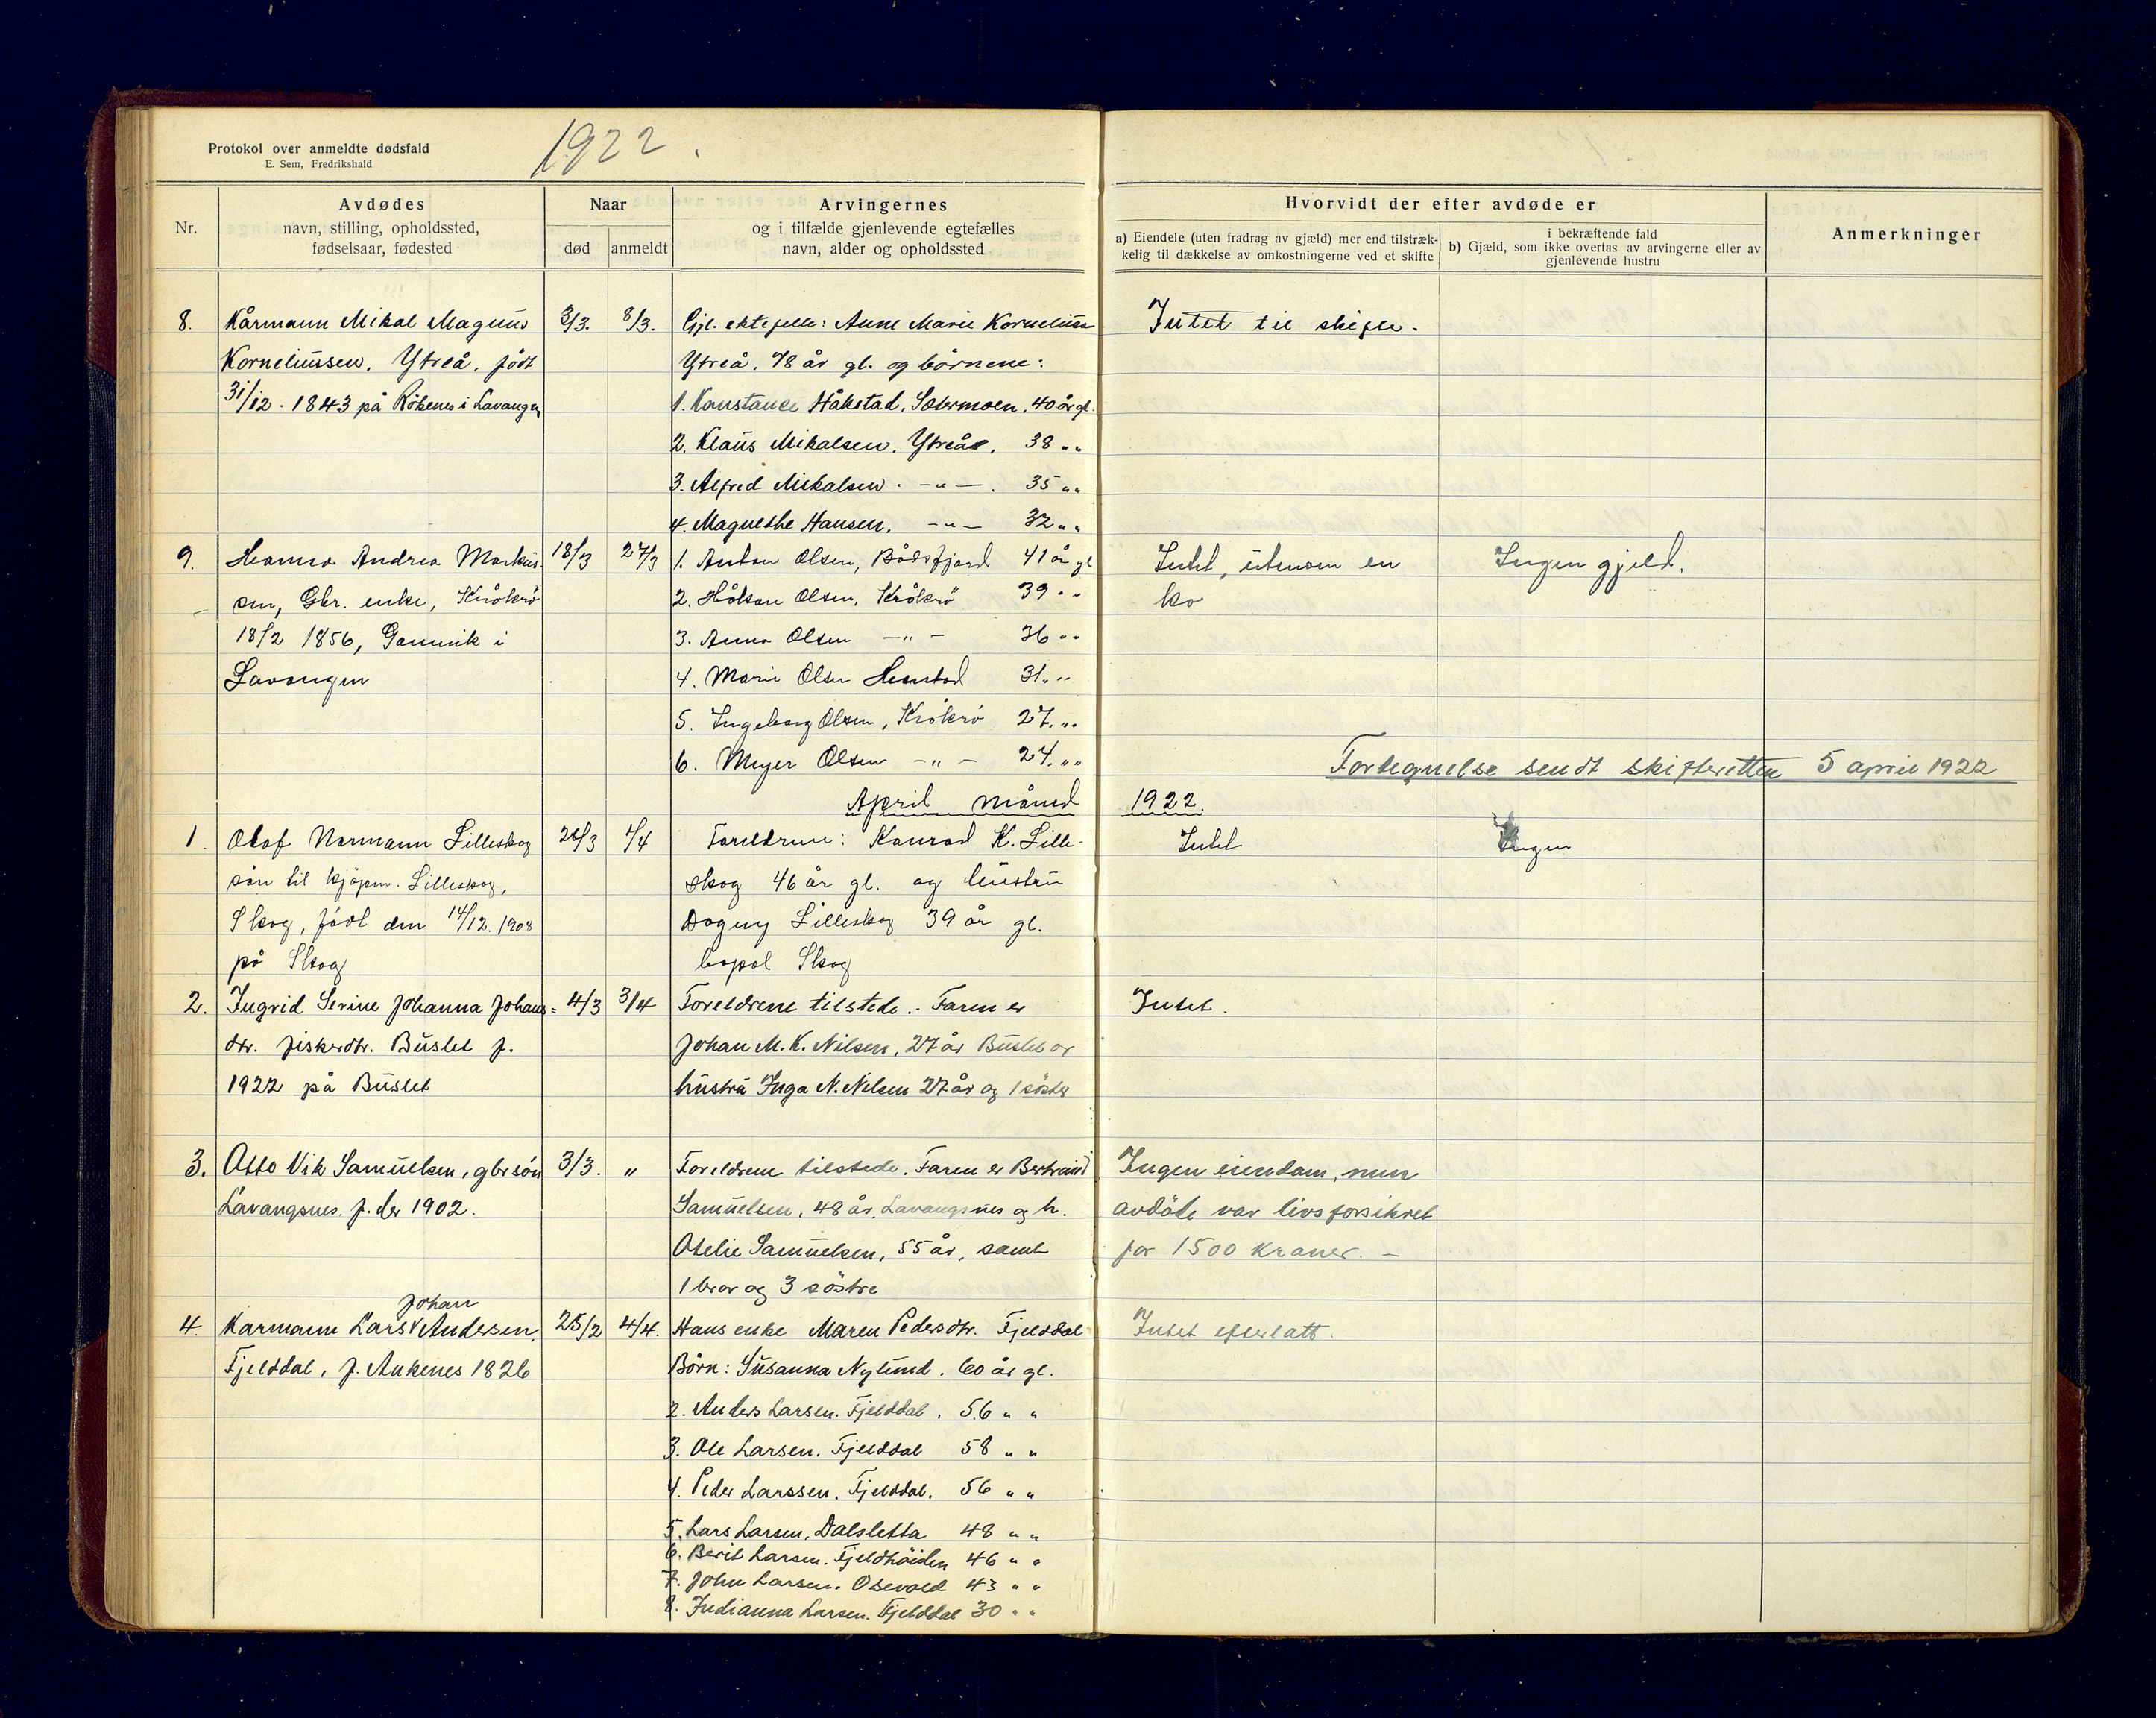 Protokol over anmeldte dødsfald
E. Sem, Fredrikshald
1922.
Nr.
Avdødes
navn, stilling, opholdssted,
fødselsaar, fødested
Naar
død
anmeldt
Arvingernes
og i tilfælde gjenlevende egtefælles
navn, alder og opholdssted
Hvorvidt der efter avdøde er
a) Eiendele (uten fradrag av gjæld) mer end tilstræk-
kelig til dækkelse av omkostningerne ved et skifte
i bekræftende fald
b) Gjæld, som ikke overtas av arvingerne eller av
gjenlevende hustru
Anmerkninger
8. Kårmann Mikal Magnus 3/3. 8/3. Gjl. ektefelle: Anne Marie Korneliussen Intet til skifte.
Korneliussen, Ytreå, født Ytreå, 78 år gl. og børnene:
31/12. 1843 på Røkenes i Lavangen 1. Konstance Håkstad, Setermoen, 40 år gl.
2. Klaus Mikalsen, Ytreå, 38 " "
3. Alfred Mikalsen. -"-. 35 " "
4. Magnethe Hansen, -"- 32 " "
9. Hanna Andrea Markus- 18/3 27/3 1. Anton Olsen, Bådsfjord 41 år gl Intet, utenom en Ingen gjeld.
sen, Gbr. enke, Kråkrø 2. Håkon Olsen, Kråkrø 39 " " ko
18/2 1856, Gamvik i 3. Anna Olsen -"- 36 " "
Lavangen 4. Marie Olsen 31 " "
5. Ingeborg Olsen, Kråkrø 27 " "
6. Meyer Olsen -"- 24 " "
Fortegnelse sendt skifteretten 5 april 1922
April måned 1922.
1. Olaf Normann Lilleskog 26/3 1/4 Foreldrene: Konrad K. Lille- Intet Ingen
søn til kjøpm. Lilleskog, skog 46 år gl. og hustru
Skog, født den 14/12. 1908 Dagny Lilleskog 39 år gl.
på Skog bopel Skog
2. Ingrid Serine Johanna Johans= 4/3 3/4 Foreldrene tilstede.- Faren er Intet.
dtr. fiskerdtr. Buslet f. Johan M. K. Nilsen, 27 år Buslet og
1922 på Buslet hustru Inga N. Nilsen 27 år og 1 søster
3. Otto Vik Samuelsen, gbrsøn 3/3. " Foreldrene tilstede. Faren er Bertraud Ingen eiendom, men
Lavangsnes f. der 1902. Samuelsen, 48 år, Lavangsnes og h. avdøde var livsforsikret
Otelie Samuelsen, 55 år, samt for 1500 kroner. -
1 bror og 3 søstre
Johan
4. Karmann Lars Andersen, 25/2 4/4. Hans enke Maren Pedersdtr. Fjelddal Intet efterlatt.
Fjelddal, f. Ankenes 1826 Børn: Susanna Nylund, 60 år gl.
2. Anders Larsen. Fjelddal, 56 " "
3. Ole Larsen. Fjelddal 58 " "
4. Peder Larssen. Fjelddal. 56 " "
5. Lars Larsen, Dalsletta 48 " "
6. Berit Larsen. Fjeldhøiden 46 " "
7. John Larsen. Osevold 43 " "
8. Indianna Larsen. Fjelddal 30 " "